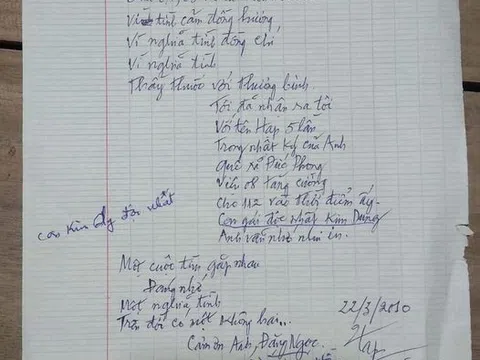 Vì tình cảm đồng hương
Vì nghĩa tình đồng chí
Vì nghĩa tình
Thầy thuốc với thương binh.
Tôi đã nhận ra tôi
Với tên Hap 5 lần
Trong nhật ký của Anh
Quê xã Đức Phong
Viện 08 tăng cường
Cho 112 vào thời điểm ấy-
Con gái độc nhất Kim Dung
Anh vẫn nhớ như in.
độc nhất
Một cuộc tìm gặp nhau
Đáng nhớ
Một nghĩa tình
Trên đời có một không hai...
22/3/2010
Cảm ơn Anh, Đặng Ngọc